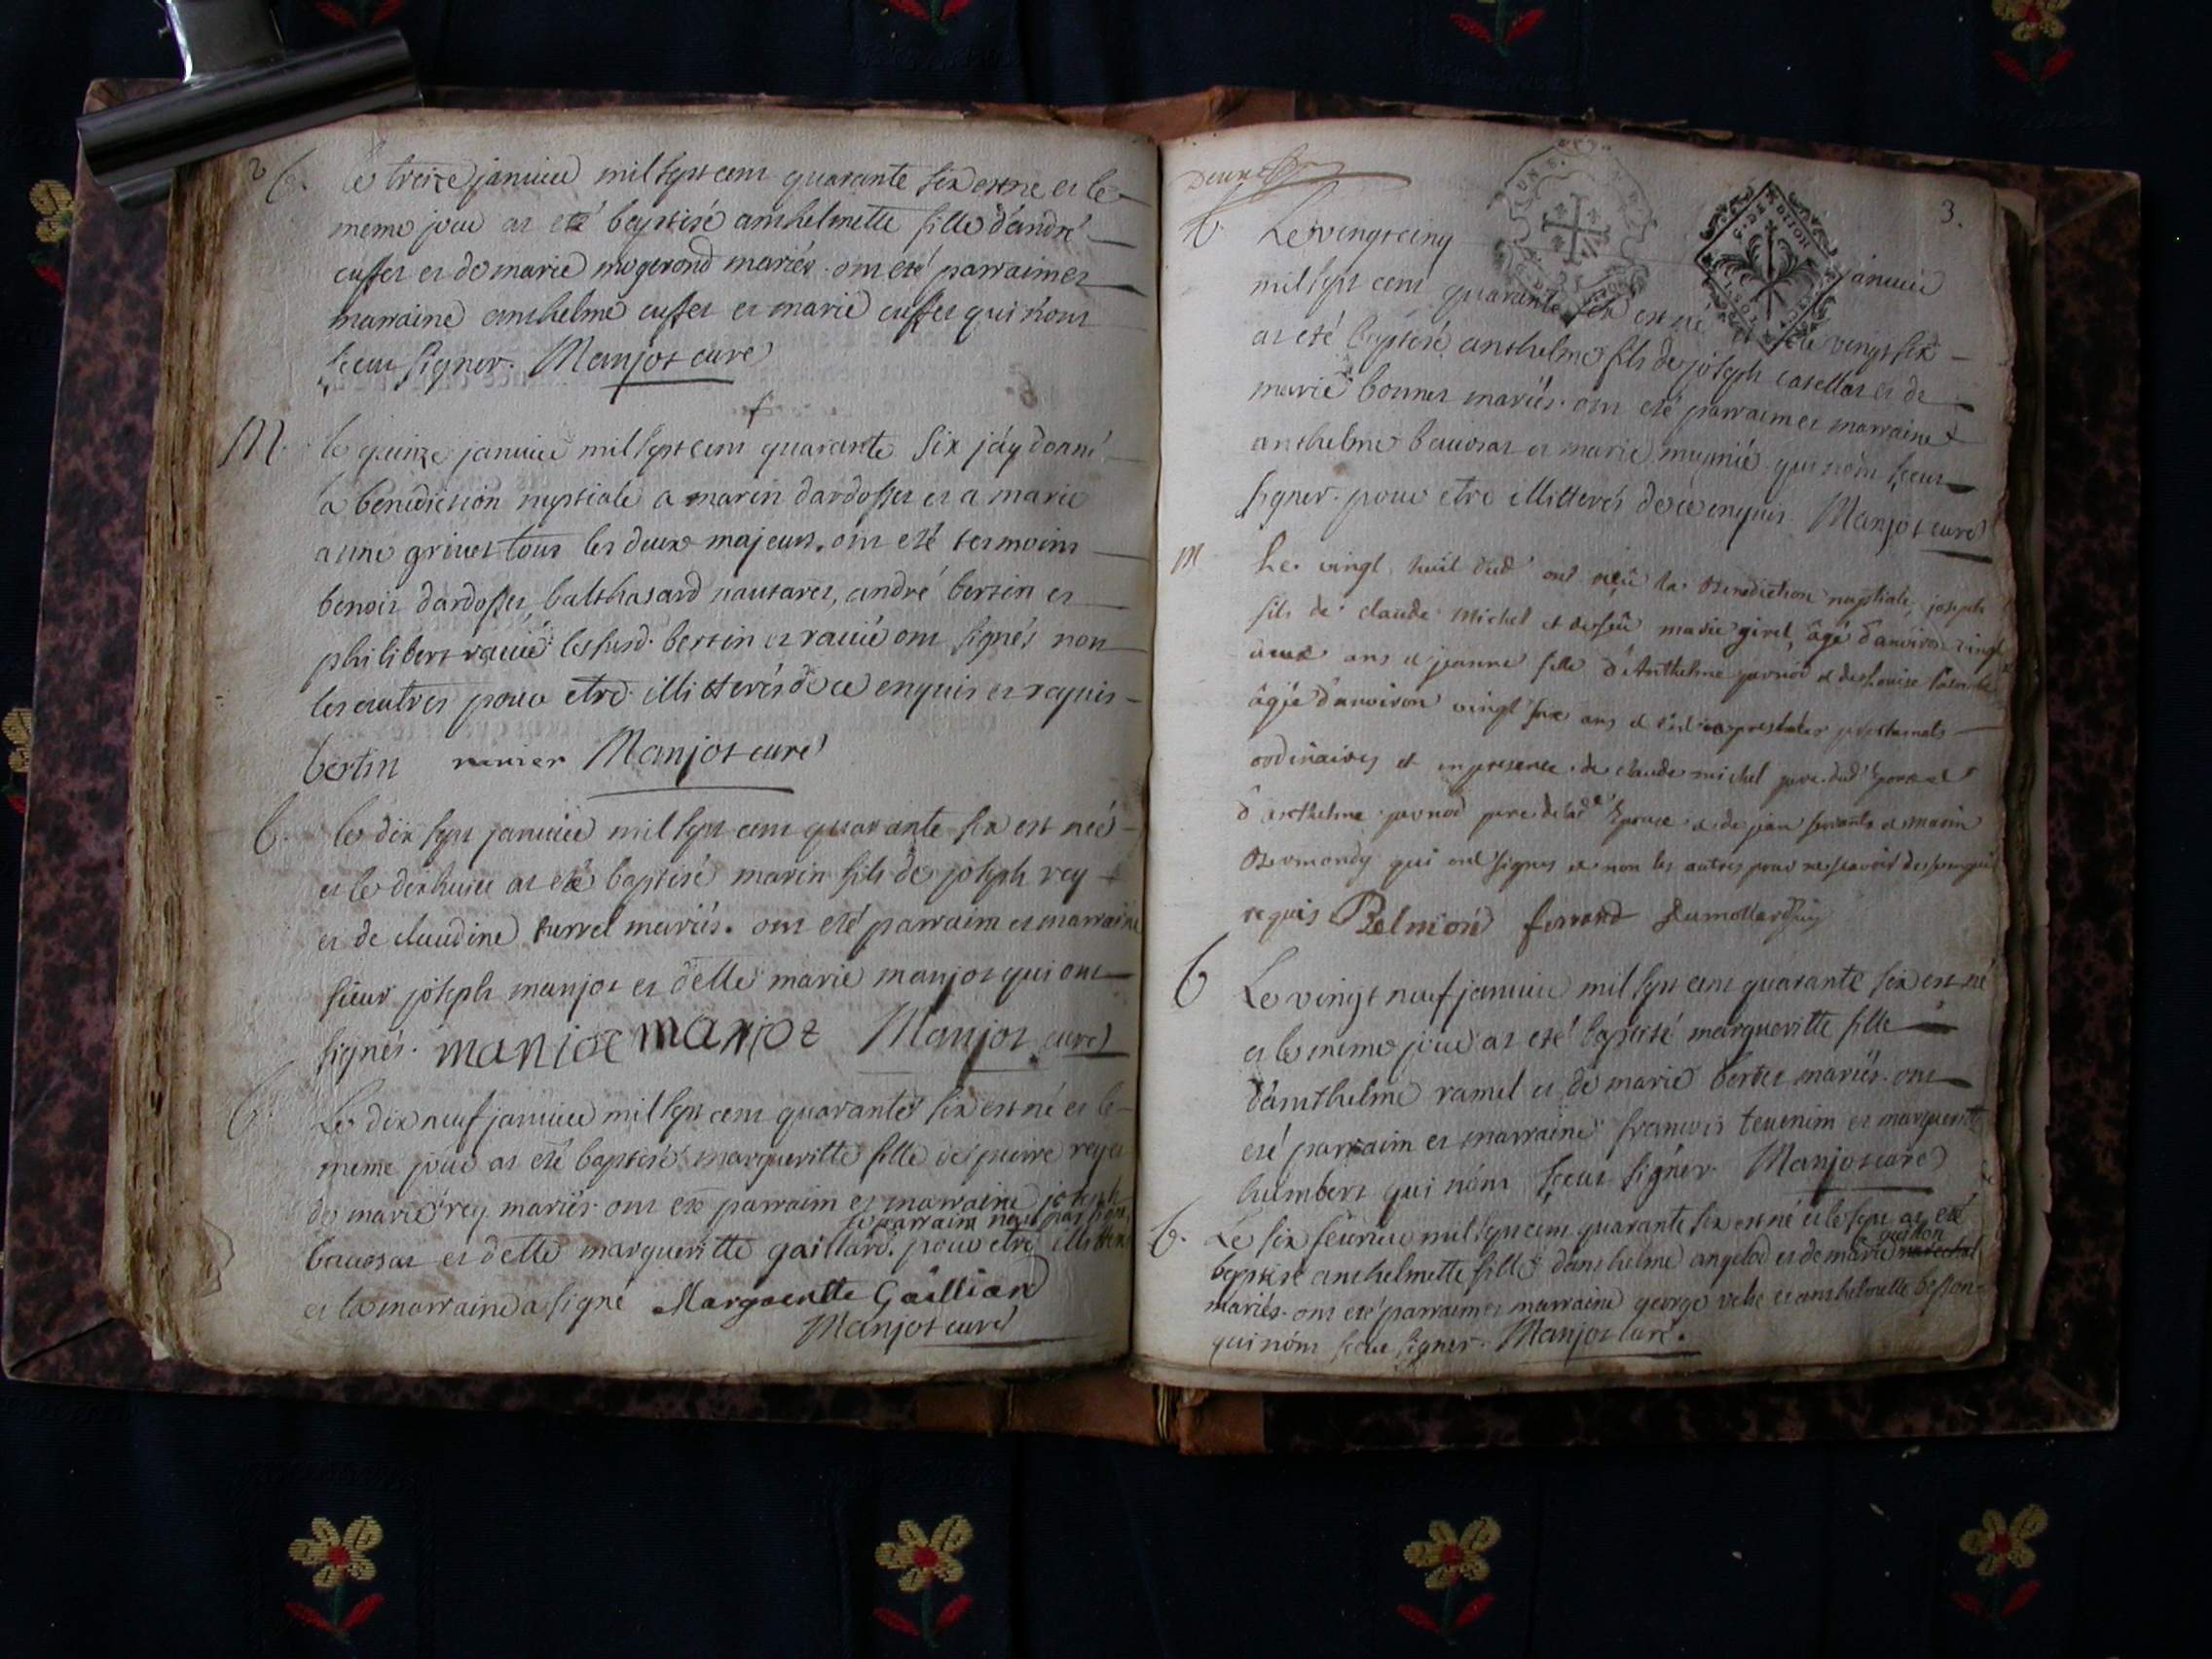 2
b. le treize janvier mil sept cent quarante six est né et le
meme jour at eté baptisé anthelmette fille d'andré
cusset et de marie mogerond mariés. ont eté parraim et
marraine anthelme cusset et marie cusset qui n'ont
sceut signer. Manjot curé
M. le quinze janvier mil sept cent quarante six j'áy donné
la benediction nuptiale a marin dardosset et a marie
anne grivet tous les deux majeurs. ont eté tesmoins
benoit dardosset, balthasard nautaret, andré bertin et
philibert ravié. les susd. bertin et ravié ont signés non
les autres pour etre illitterés de ce enquis et requis
bertin ravier Manjot curé
b. le dix sept janvier mil sept cent quarante six est neé
et le dixhuict at eté baptisé marin fils de joseph rey
et de claudine turrel mariés. ont eté parraim et marraine
sieur joseph manjot et delle marie manjot qui ont
signés. manjot manjot Manjot curé
b. Le dix neuf janvier mil sept cent quarante six est né et le
meme jour at eté baptisé margueritte fille de pierre rey et
de marie rey mariés ont eté parraim et marraine joseph
le parraim
bavosat et delle margueritte gaillard. pour etre
et la marraine a signé Margueritte Gaillian
Manjot curé
Deux
3.
b. Le vingt cinq janvier
mil sept cent quarante six est né et le vingt six
at eté baptisé anthelme fils de joseph catellat et de
marie bonnet mariés. ont eté parraim et marraine
anthelme bavosat et marie munié qui n'ont sceut
signer. pour etre illitterés de ce enquis. Manjot curé
M Le vingt huit dud. ont reçû la Benediction nuptiale, joseph
fils de claude Michel et de feüe marie girel, âgé d'anviron vingt
deux ans et jeanne fille d'Anthelme pernod et de Louise
âgée d'anviron vingt six ans
ordinaires et en presence de claude michel pere dud. Epoux et
d'anthelme pernod pere de lad. Epouse et de jean et marin
qui ont signes et non les autres pour ne sçavoir
requis Belmond ferrand Dumollard
b Le vingt neuf janvier mil sept cent quarante six est né
et le meme jour at eté baptisé margueritte fille
d'ámthelme ramel et de marie bertet mariés. ont
eté parraim et marraine francois tevenim et margueritte
humbert qui n'ónt sceut signer. Manjot curé
b. Le six feuvrier mil sept cent quarante six est né et le sept at eté
guidon
baptisé anthelmette fille d'anthelme angelod et de marie marechal
mariés. ont eté parraim et marraine george velse et anthelmette besson
qui n'ónt sceut signer. Manjot curé.